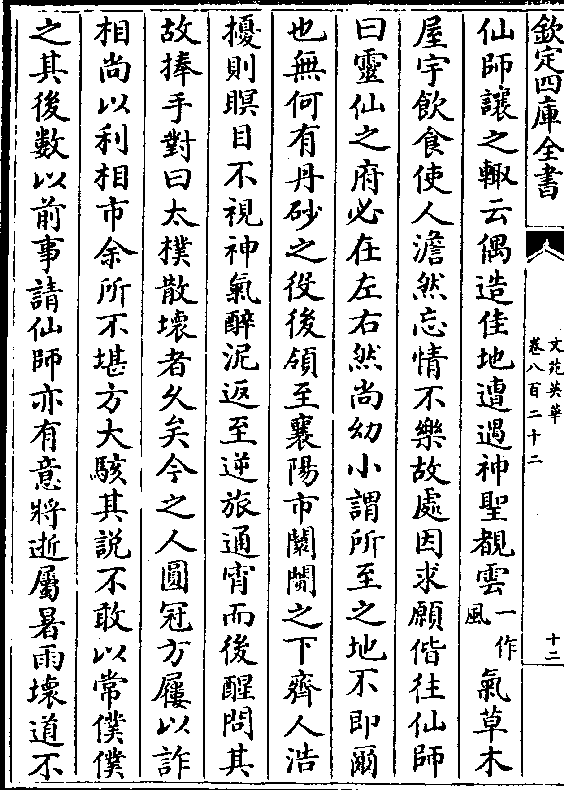 欽定四庫全書
文苑英華
卷八百二十二
十二
仙師讓之輙云偶造佳地遭遇神聖覩雲一作風氣草木
屋宇飲食使人澹然忘情不樂故處因求願偕往仙師
曰靈仙之府必在左右然尚幼小謂所至之地不即爾
也無何有丹砂之役後領至襄陽市闤闠之下齊人浩
擾則瞑目不視神氣醉泥返至逆旅通宵而後醒問其
故捧手對曰太撲散壞者久矣今之人圓冠方屨以詐
相尚以利相市余所不堪方大駭其説不敢以常僕僕
之其後數以前事請仙師亦有意將逝屬暑雨壞道不